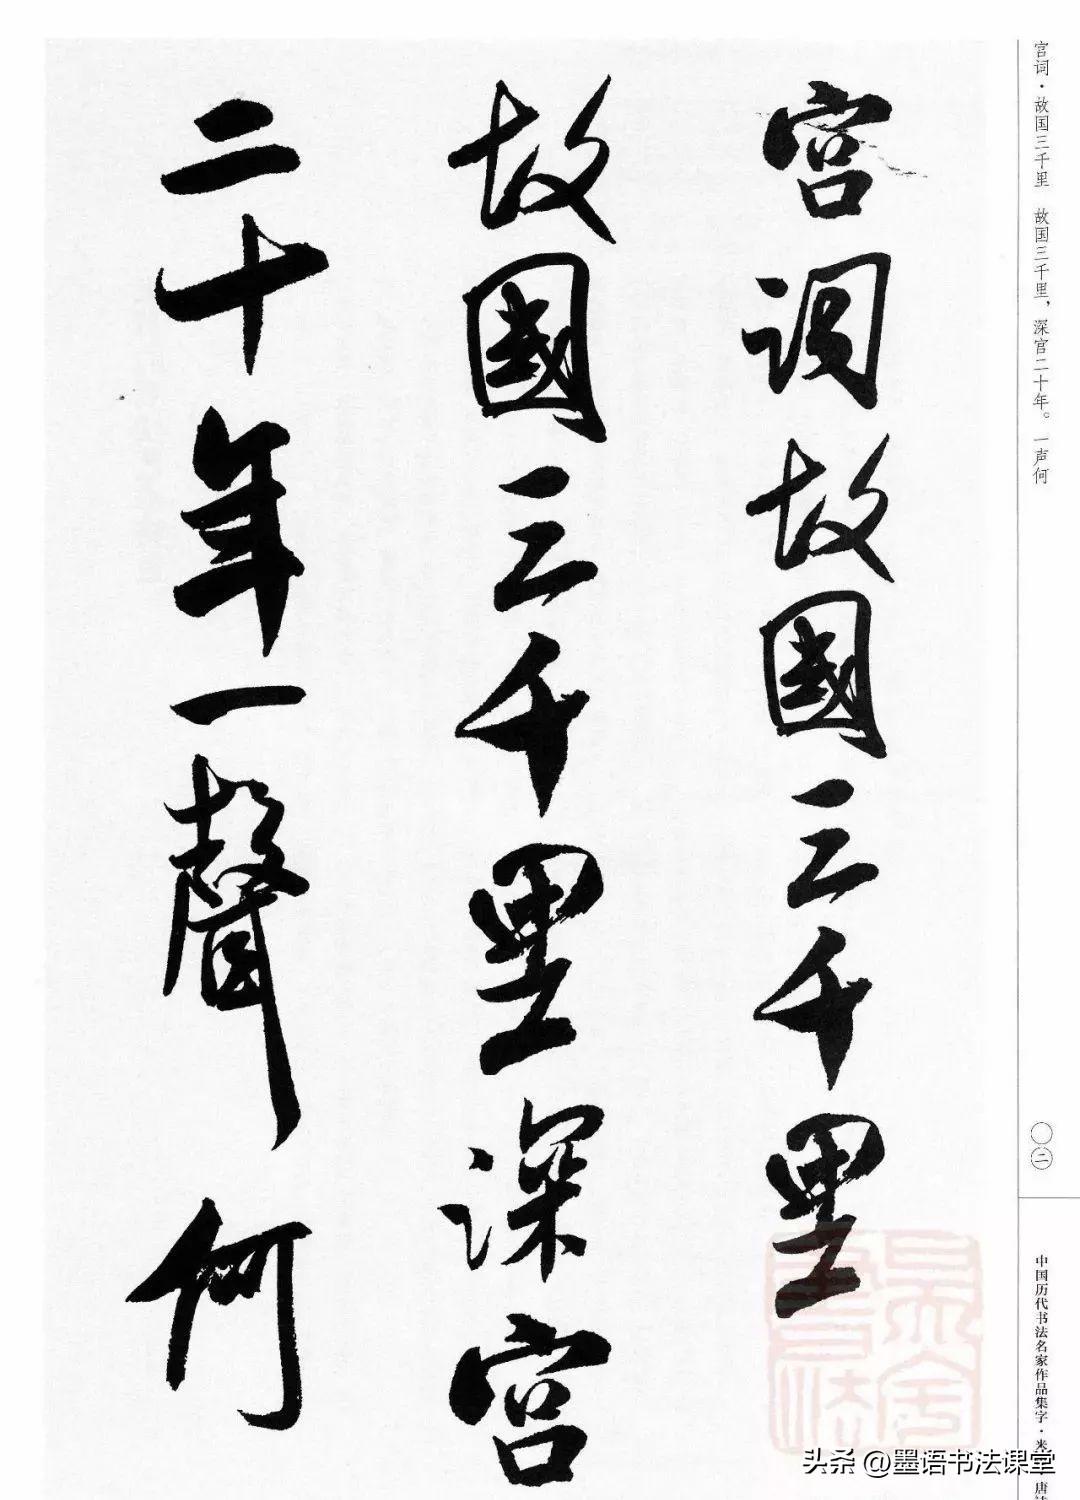 宫词·故国三千里　故国三千里，深宫二十年。一声何
宮词故國三千里
故國三千里深宮
二十年一聲何
〇二
中国历代书法名家作品集字·米
唐
头条 @墨语书法课堂